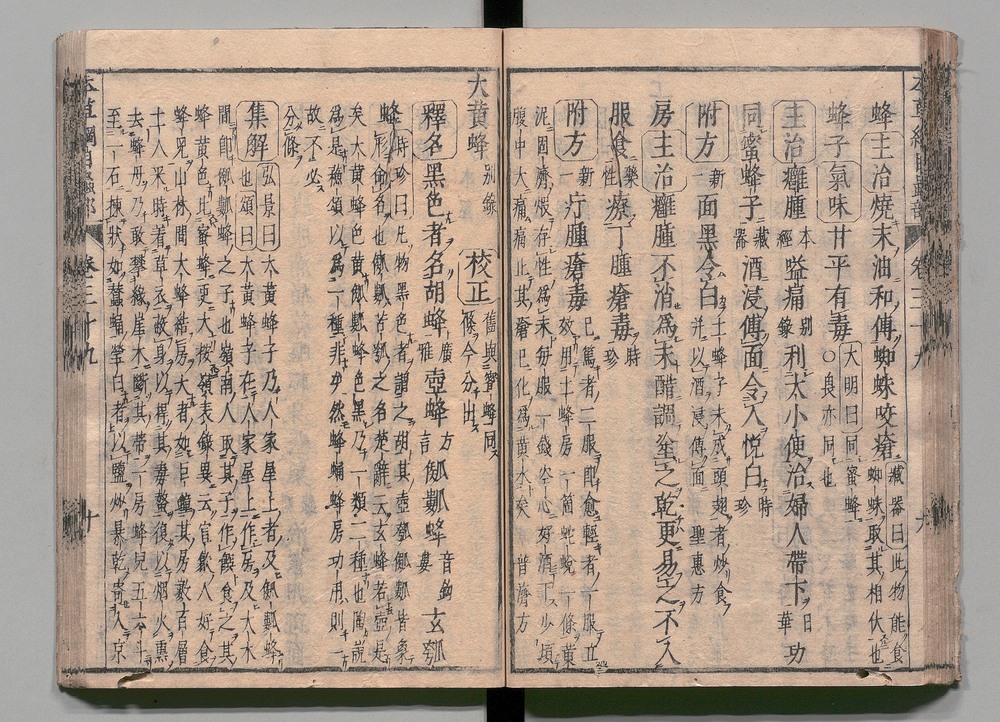 蜂 主治 燒末油和傅蜘蛛咬瘡 藏器曰此物能食
蜘蛛取其相伏也
蜂子氣味甘平有毒 大明曰同蜜蜂
○良亦同也
主治 癰腫 本經 嗌痛 別錄 利大小便治婦人帶下 日華 功
同蜜蜂子 藏器 酒浸傅面令人悅白 時珍
附方 新一 面黑令白 土蜂子未成頭翅者炒食
并以酒浸傅面 聖惠方
房主治 癰腫不消爲末醋調塗之乾更易之不入
服食 藥性 療丁腫瘡毒 時珍
附方 新一 疔腫瘡毒 已篤者二服即愈輕者一服立
效用土蜂房一箇蛇蛻一條黃
泥固濟煅存性爲末每服一錢空心好酒下少頃
腹中大痛痛止其瘡已化爲黃水矣 普濟方
本草綱目蟲部 卷三十九
大黃蜂 別錄 校正 舊與蜜蜂同
條今分出
釋名 黑色者名胡蜂 廣雅 壺蜂 方言 瓠𤬛蜂 音鉤婁 玄瓠
蜂 時珍曰凡物黑色者謂之胡其壺瓠𤬛皆象
形命名也瓠𤬛苦瓠之名楚辭云玄蜂若壺是
矣大黃蜂色黃瓠𤬛蜂色黑乃一類二種也陶說
爲是蘇頌以爲一種非也然蜂蛹蜂房功用則一
故不必
分條
集解 弘景曰大黃蜂子乃人家屋上者及瓠𤬛蜂
也頌曰大黃蜂子在人家屋上作房及大木
間即瓠𤬛蜂之子也嶺南人取其子作饌食之其
蜂黃色比蜜蜂更大按嶺表錄異云宣歙人好食
蜂兒山林間大蜂結房大者如巨鐘其房數百層
土人采時着草衣蔽身以捍其毒螫復以烟火熏
去蜂母乃敢攀緣崖木斷其蒂一房蜂兒五六斗
至一石揀狀如蠶蛹瑩白者以鹽炒暴乾寄入京
本草綱目蟲部 卷三十九 十